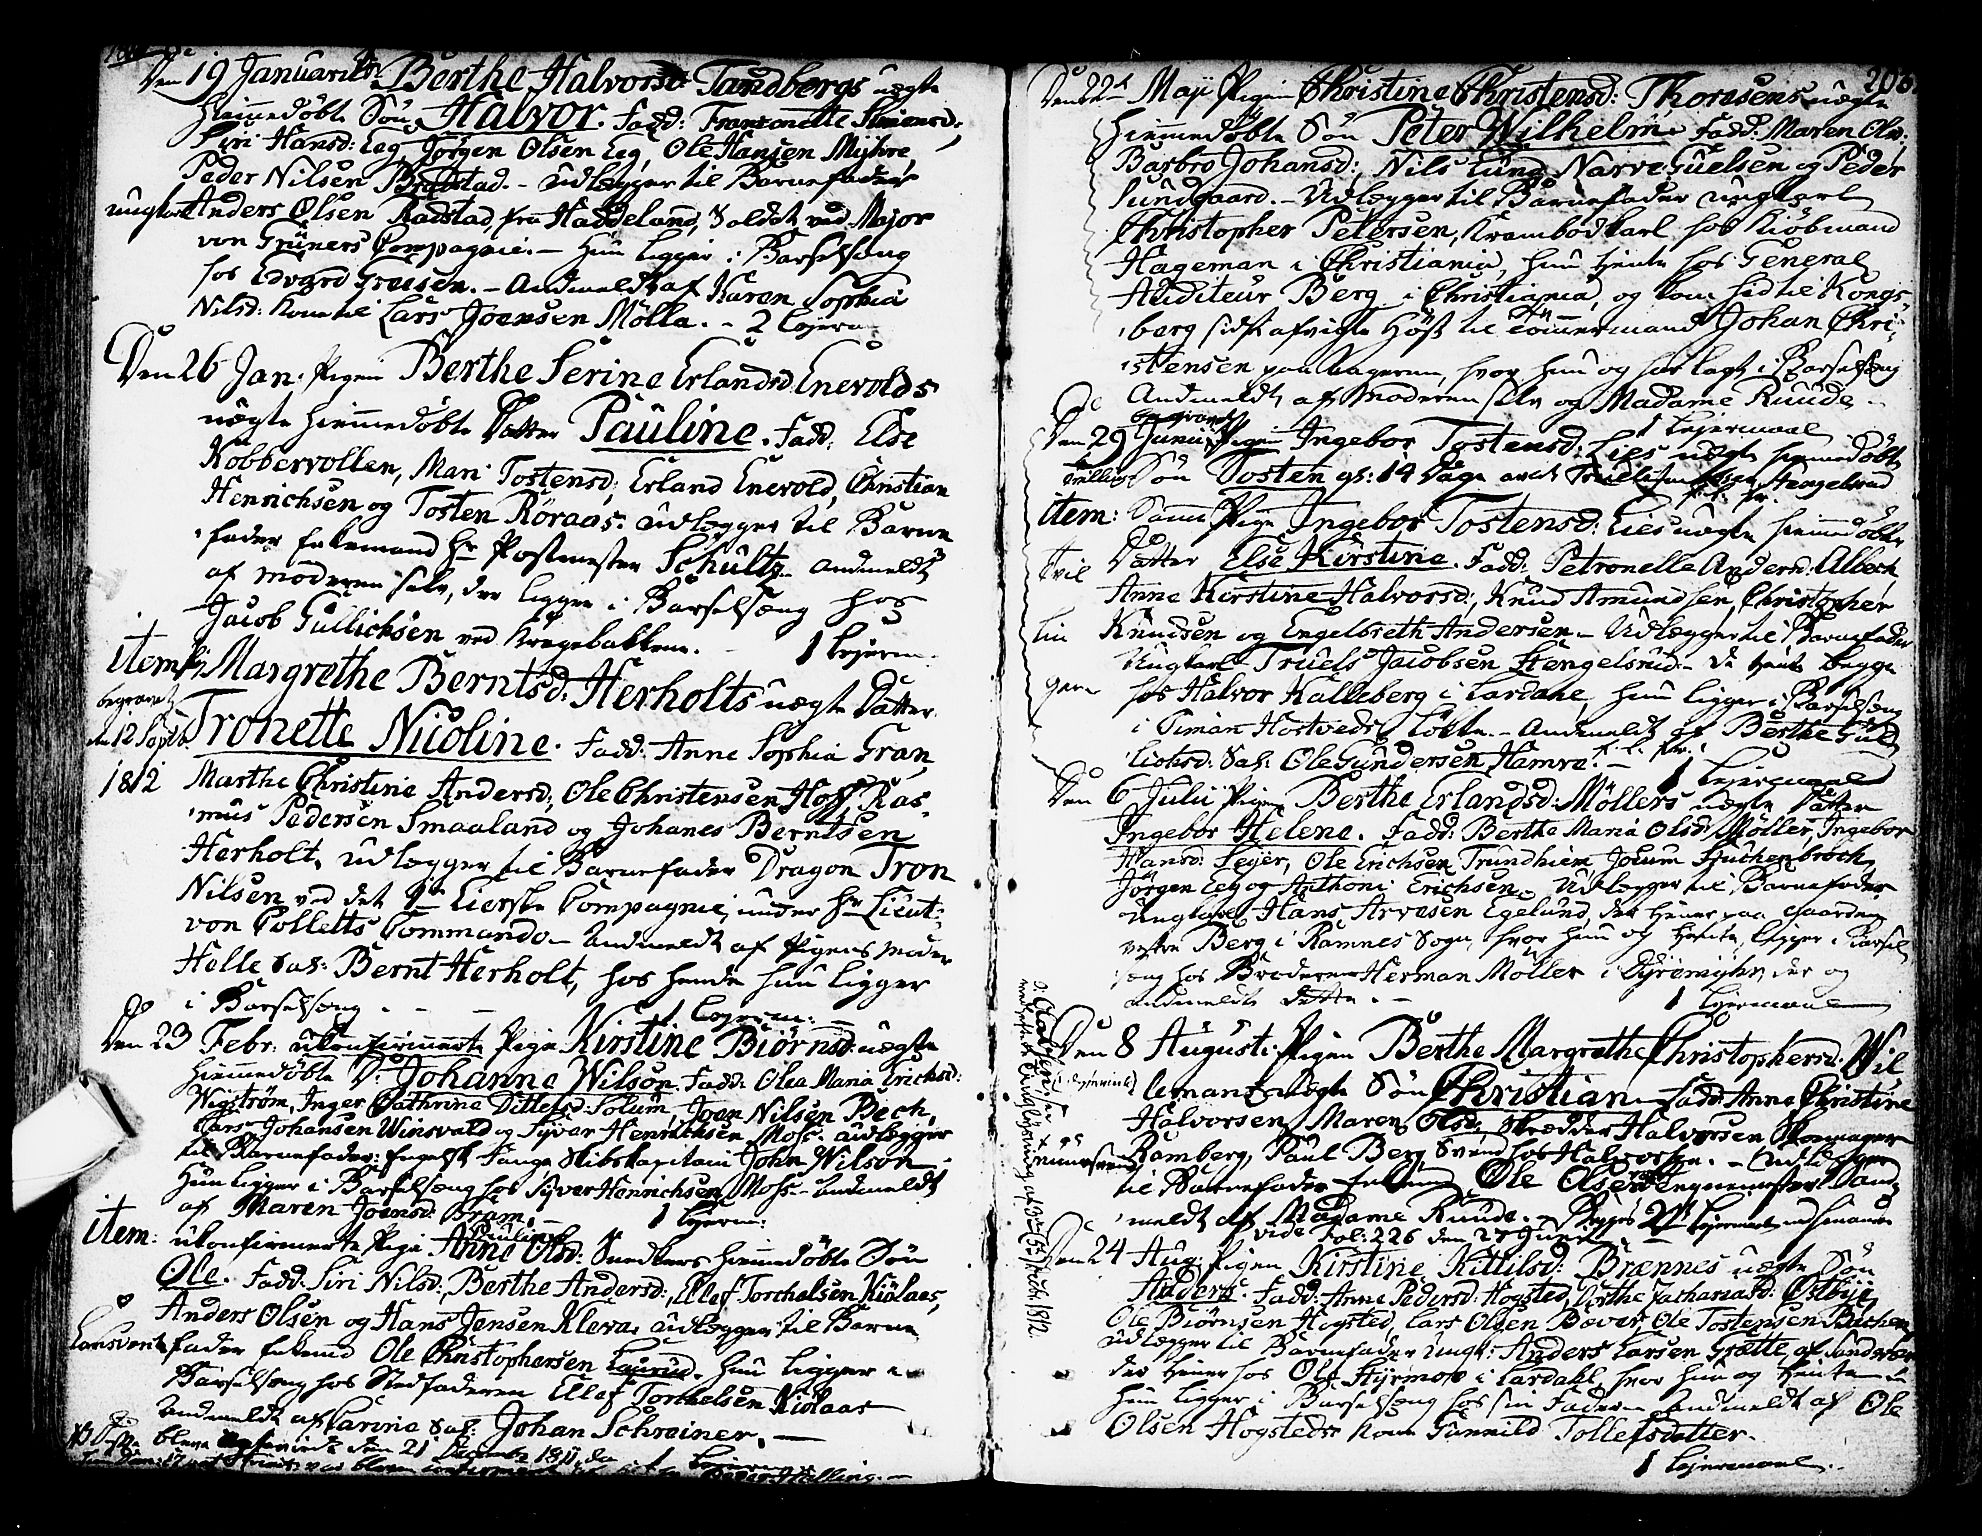 Den 19 Januarii Berthe Halvorsd: Tandbergs uægte
hiemmedøbte Søn Halvor. Fadd: Fransonette Simensd:,
Siri Hansd: Eeg, Jørgen Olsen Eeg, Ole Hansen Myhre,
Peder Nilsen Bragstad. - Udlægger til Barnefader
ungkarl Anders Olsen Radstad, fra Haddeland, Soldat ved Major
von Grüners Compagnie. - Hun ligger i Barselsæng
hos Edvard Gravsen. - Andmeldt af Karen Sophia
Nilsd: Kone til Lars Joensen Mølla. - 2 Lejerm
Den 26 Jan: Pigen Berthe Serine Erlandsd: Enevolds
uægte hiemmedøbte Datter Pauline. Fadd: Else
Kobbervollen, Mari Tostensd:, Erland Enevold, Christian
Henrichsen og Tosten Røraas. Udlægger til Barne
fader Enkemand Hr Postmester Schultz. Andmeldt
af moderen selv, der ligger i Barselsæng hos
Jacob Gullichsen ved Kragebakken. - 1 Lejerm:
item Pi: Margrethe Berntsd: Herholts uægte Datter
begravet
den 12 Sept:
1812
Tronette Nicoline. Fadd: Anne Sophia Gran,
Marthe Christine Andersd:, Ole Christensen Hoff, Ras-
mus Pedersen Smaaland og Johanes Berntsen
Herholt. Udlægger til Barnefader Dragon Tron
Nilsen ved det 1ste Lierske Compagnie, under Hr Lieut:
von Colletts Commando - Andmeldt af Pigens moder
Helle Sal: Bernt Herholt, hos hende hun ligger
i Barselsæng - - - 1 Lejerm: -
Den 23 Febr: ukonfirmerte Pige Kirstine Biørnsd: uægte
hiemmedøbte Dr: Johanne Wilson. Fadd: Olea Maria Erichsd:
Wigstrøm, Inger Cathrine Ditlefsd: Solum, Joen Nilsen Bech,
Lars Johansen Winsvald og Syver Henrichsen Moss. Udlægger
til Barnefader: Engelsk Fange Skibskapitain John Wilson -
Hun ligger i Barselsæng hos Syver Henrichsen Moss. - Andmeldt
af Maren Joensd: Bram. - 1 Lejerm:
item: ukonfirmerte Pige Anne Pauline Olsd: Snedkers hiemmedøbte Søn
Ole. Fadd: Siri Nilsd:, Berthe Andersd:, Ellef Torchelsen Kiølaas,
Anders Olsen og Hans Jensen Kleva. Udlægger til Barne
fader Enkemd Ole Christophersen Laurud. Hun ligger i
Barselsæng hos Stedfaderen Ellef Torchelsen Kiølaas
Andmeldt af Carine Sal: Johan Schreiner. -
blev den 21 December 1811, da 1 Lejerm:
203
Den 22de Maji Pigen Christine Christensd: Thoresens uægte
hiemmedøbte Søn Peter Wilhelm. Fadd: Maren Ols:,
Barbro Johansd:, Nils Lund, Narve Guelsen og Peder
Sundgaard. - Udlægger til Barnefader ungkarl
Christopher Petersen, Krambodkarl hos Kiøbmand
Hageman i Christiania, hun tjente hos General
Auditeur Berg i Christiania, og kom hid til Kongs-
berg sidst afvigte Høst til Tømmermand Johan Chri-
stensen paa Hageren, hvor hun og har lagt i Barselsæng
Andmeldt af moderen selv og Madame Ruude -
1 Lejermaal
Den 29 Junii Pigen Ingebor Tostensd: Lies uægte hiemmedøbte
Tvilling Søn Tosten gl: 14 Dage
item: Samme Pige Ingebor Tostensd: Lies uægte hiemmedøbte
Tvil Datter Else Kirstine. Fadd: Petronelle Andersd: Albech
Anne Kirstine Halvorsd:, Knud Amundsen, Christopher
lin Knudsen og Engelbreth Andersen - Udlægger til Barnefader
Ungkarl Truels Jacobsen Stengelsrud - De tjente begge
gern hos Halvor Kalleberg i Lardale, hun ligger i Barselsæng
i Timan Hostvedt Løkke. - Andmeldt af Berthe Gul
liksd: Sal: Ole Gundersen Hamre. -
1 Lejermaal
Den 6 Julii Pigen Berthe Erlandsd: Møllers uægte Datter
Ingebor Helene. Fadd: Berthe Maria Olsd: Møller, Ingebor
Hansd: Lejer, Ole Erichsen Trundhiem, Jocum Stuchenbroch
Jørgen Eeg og Anthoni Erichsen. Udlægger til Barnefader
Ungkarl Hans Arvesen Egelund, der tiener paa Gaarden
vestre Berg i Ramnes Sogn, hvor hun og tjente, ligger i Barsel
sæng hos Broderen Herman Møller i Dyremyhr, der og
andmeldte dette. - 1 Lejermaal
Den 8 Augusti Pigen Berthe Margrethe Christophersd: Wil
lemans uægte Søn Christian. Fadd: Anne Christine
Halvorsen, Maren Olsd:, Skrædder Halvorsen, Skomager
Ramberg, Paul Berg Svend hos Halvorsen. - Udlægger
til Barnefader Ole Olsen And
meldt af Madame Ruude. - 2det Lejermaal
vide Fol: 226 den 27 Junii
Den 24 Aug: Pigen Kirstine Kittilsd: Brænnes uægte Søn
Anders. Fadd: Anne Pedersd: Hogsted, Dorthe Zachariasd: Østbye,
Ole Biørnsen Hogsted, Lars Olsen Bæver, Ole Tostensen Bachen
Udlægger til Barnefader Ungk: Anders Larsen Grætte, af Sandsvær
der tiener hos Ole Styrmoe i Lardahl, hvor hun og tjente -
Hun ligger i Barselsæng hos sin Fader - Andmeldt af Ole
Olsen Hogsteds Kone Gunnild Tollefsdatter.
1 Lejermaal.